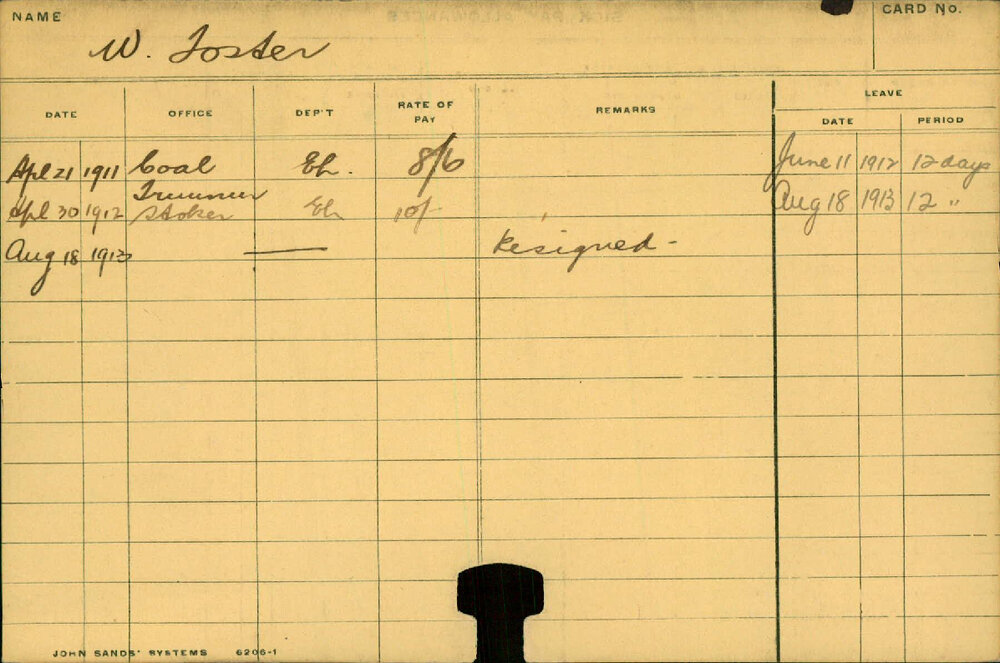 NAME
CARD No.
W. Foster
DATE OFFICE DEP'T RATE OF PAY REMARKS LEAVE
DATE PERIOD
Apl 21 1911 Coal Trimmer 8/6 June 11 1912 12 days
Apl 30 1912 Stoker 10/- Aug 18 1913 12 "
Aug 18 1913 — Resigned -
JOHN SANDS' SYSTEMS 6206-1